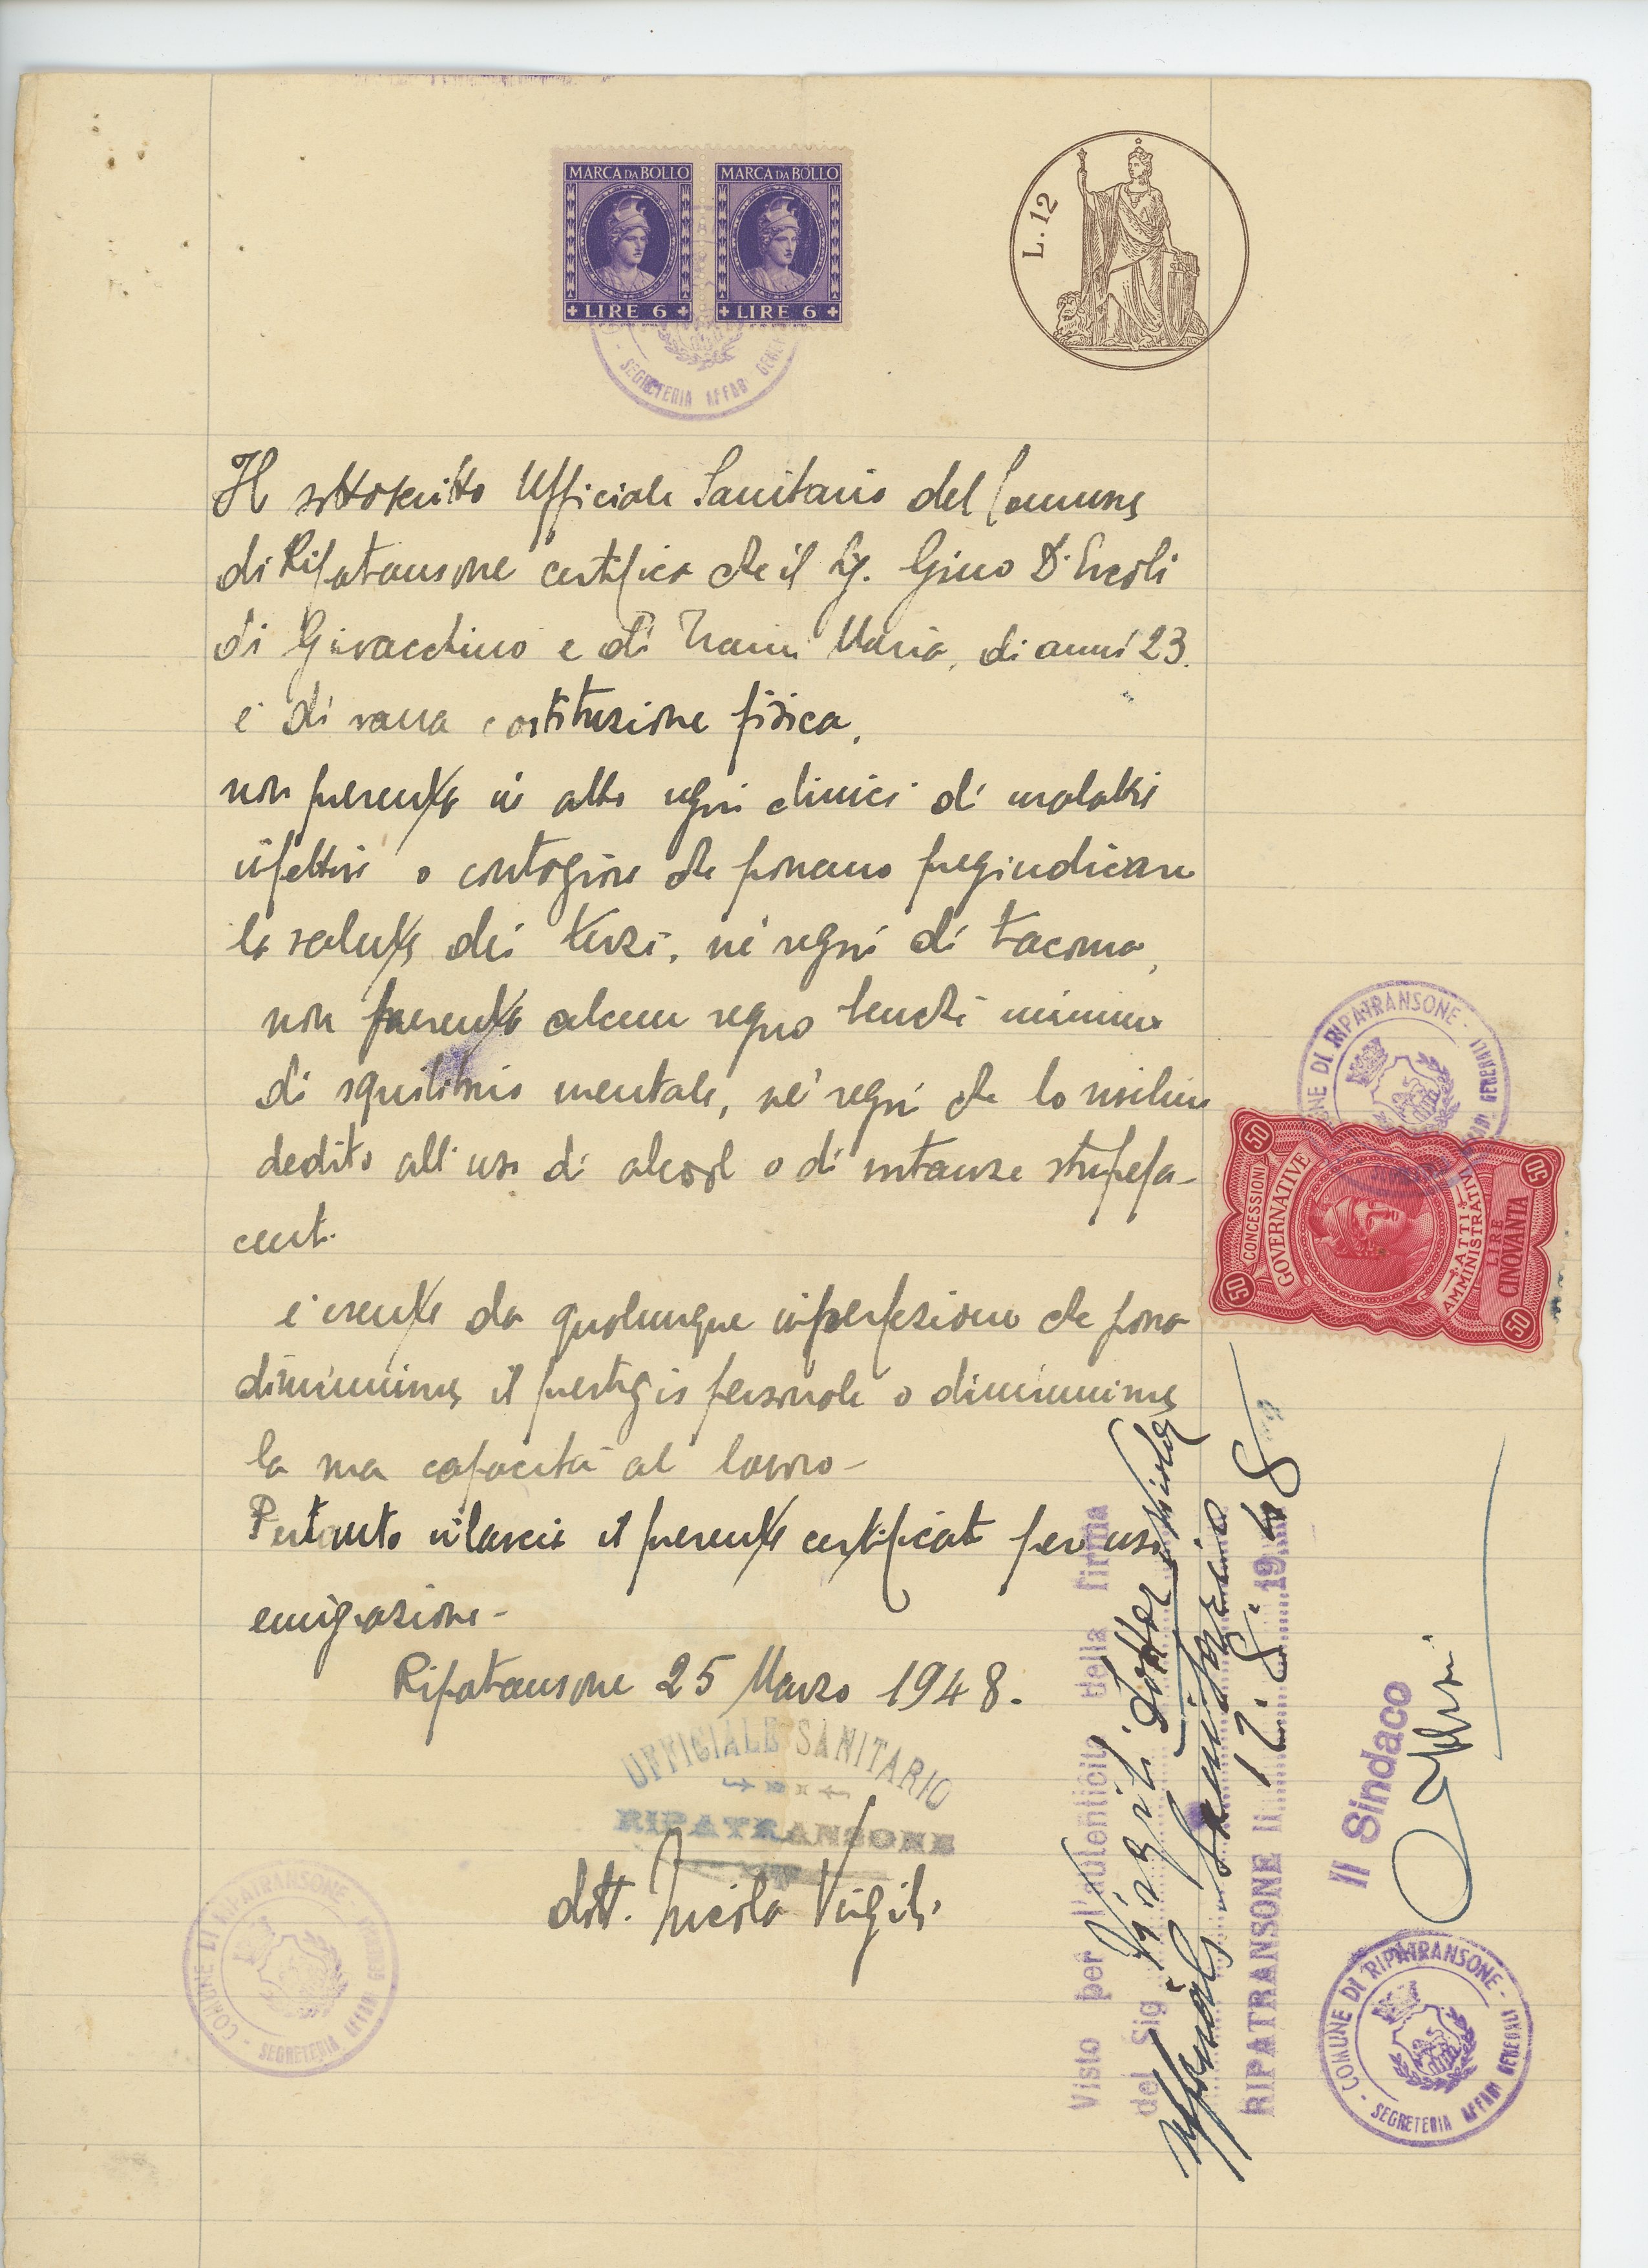 MARCA DA BOLLO
LIRE 6
MARCA DA BOLLO
LIRE 6
L. 12
SEGRETERIA AFFARI GENE
Il sottoscritto Ufficiale Sanitario del Comune
di Ripatransone certifica che il Sig. Gino D'Ercoli
di Giovacchino e di Maria, di anni 23.
è di sana costituzione fisica,
non presenta in atto segni clinici di malattie
infettive o contagiose che possano pregiudicare
la salute dei terzi, nè segni di tracoma,
non presenta alcun segno benchè minimo
di squilibrio mentale, nè segni che lo rivelino
dedito all'uso di alcool o di sostanze stupefa-
centi.
è esente da qualunque imperfezione che possa
diminuirne il prestigio personale o diminuirne
la sua capacità al lavoro -
Pertanto rilascio il presente certificato per uso
emigrazione -
Ripatransone 25 Marzo 1948.
UFFICIALE SANITARIO
RIPATRANSONE
dott. Nicola Virgili
COMUNE DI RIPATRANSONE - SEGRETERIA AFFARI GENERALI
COMUNE DI RIPATRANSONE - SEGRETERIA AFFARI GENERALI
50 50 50 50
CONCESSIONI
GOVERNATIVE
ATTI
AMMINISTRATIVI
LIRE
CINQVANTA
Visto per l'autenticità della firma
del Sig Virgili dottor Nicola
Ufficiale Sanitario
RIPATRANSONE li 17.8.1948
Il Sindaco
COMUNE DI RIPATRANSONE - SEGRETERIA AFFARI GENERALI